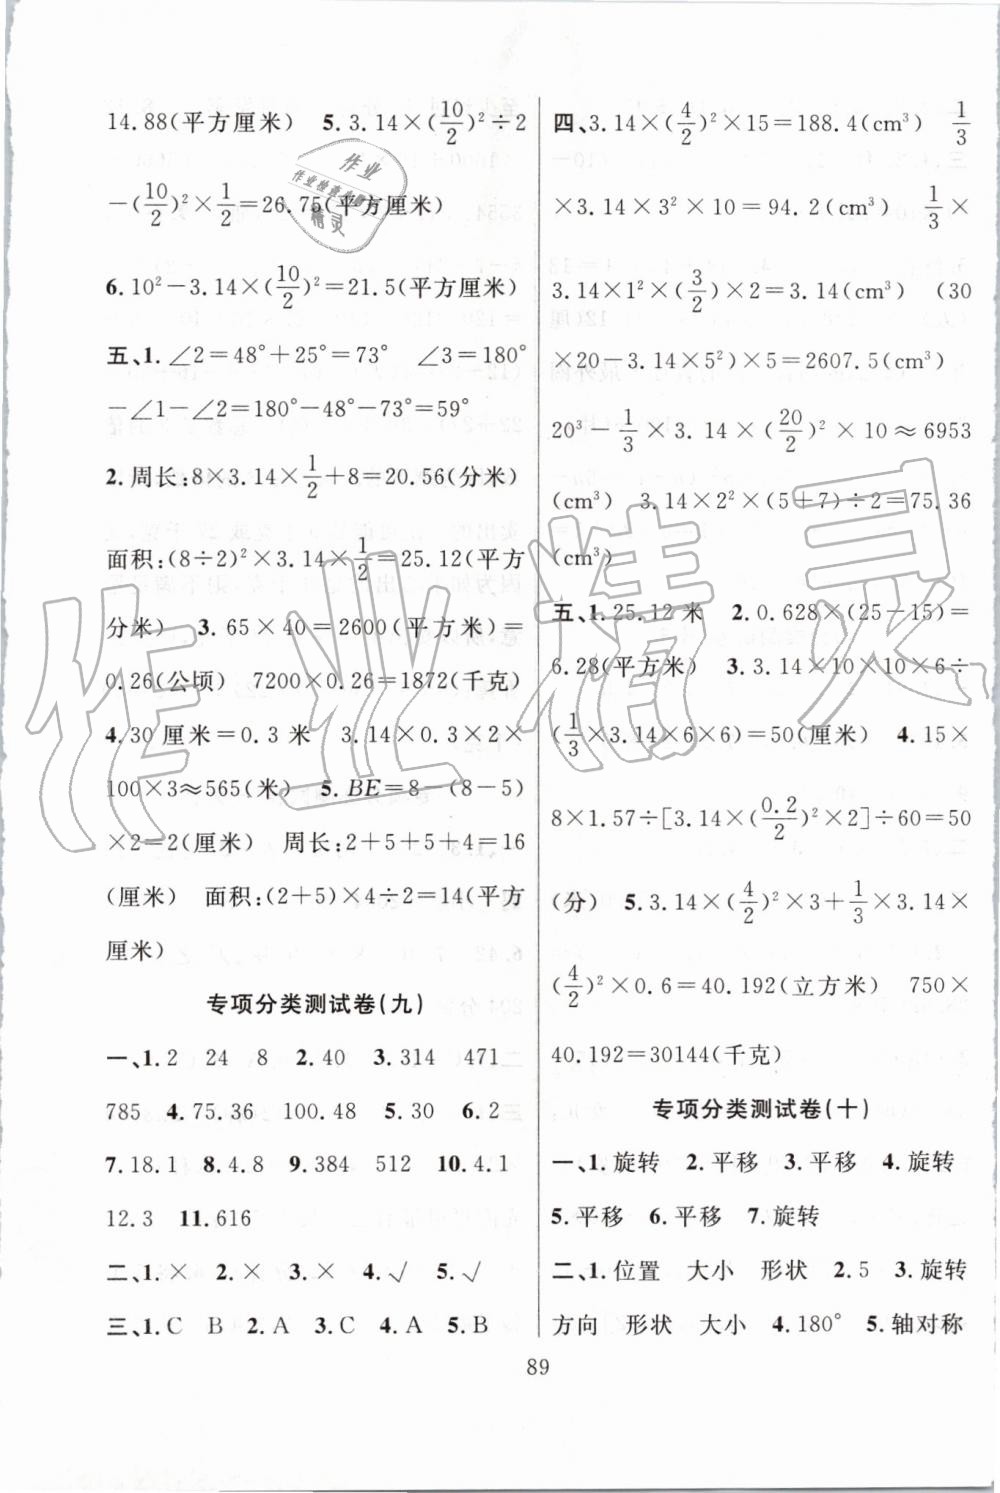 14.88(平方厘米) 5.3.14×(10/2)²÷2
-(10/2)²×1/2=26.75(平方厘米)
6.10²-3.14×(10/2)²=21.5(平方厘米)
五、1.∠2=48°+25°=73° ∠3=180°
-∠1-∠2=180°-48°-73°=59°
2.周长:8×3.14×1/2+8=20.56(分米)
面积:(8÷2)²×3.14×1/2=25.12(平方
分米) 3.65×40=2600(平方米)=
0.26(公顷) 7200×0.26=1872(千克)
4.30厘米=0.3米 3.14×0.3×2×
100×3≈565(米) 5.BE=8-(8-5)
×2=2(厘米) 周长:2+5+5+4=16
(厘米) 面积:(2+5)×4÷2=14(平方
厘米)
专项分类测试卷(九)
一、1.2 24 8 2.40 3.314 471
785 4.75.36 100.48 5.30 6.2
7.18.1 8.4.8 9.384 512 10.4.1
12.3 11.616
二、1.× 2.× 3.× 4.√ 5.√
三、1.C B 2.A 3.C 4.A 5.B
四、3.14×(4/2)²×15=188.4(cm³) 1/3
×3.14×3²×10=94.2(cm³) 1/3×
3.14×1²×(3/2)×2=3.14(cm³) (30
×20-3.14×5²)×5=2607.5(cm³)
20³-1/3×3.14×(20/2)²×10≈6953
(cm³) 3.14×2²×(5+7)÷2=75.36
(cm³)
五、1.25.12米 2.0.628×(25-15)=
6.28(平方米) 3.3.14×10×10×6÷
(1/3×3.14×6×6)=50(厘米) 4.15×
8×1.57÷[3.14×(0.2/2)²×2]÷60=50
(分) 5.3.14×(4/2)²×3+1/3×3.14×
(4/2)²×0.6=40.192(立方米) 750×
40.192=30144(千克)
专项分类测试卷(十)
一、1.旋转 2.平移 3.平移 4.旋转
5.平移 6.平移 7.旋转
二、1.位置 大小 形状 2.5 3.旋转
方向 形状 大小 4.180° 5.轴对称
89
作业
作业检查
精灵
作业精灵